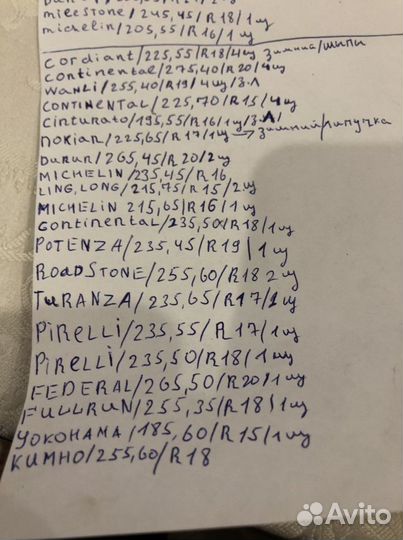 milestone/245,45/R18/1 шт
michelin/205,55/R16/1 шт
Cordiant/225,55/R18/4шт зимния/шипи
Continental/275,40/R20/4шт
WANLI/255,40/R19/4шт/З.Л
CONTINENTAL/225,70/R15/4шт
Cinturato/195,55/R16/1шт/З.Л/
nokian/225,65/R17/1шт → зимний/липучка
Durun/265,45/R20/2шт
MICHELIN/235,45/R16,
LING,LONG/215,75/R15/2шт
MICHELIN 215,65/R16/1шт
Continental/235,50/R18/1шт
POTENZA/235,45/R19/1шт
ROADSTONE/255,60/R18 2шт
TURANZA/235,65/R17/1шт
PiRELLi/235,55/R17/1шт
PiRELLi/235,50/R18/1шт
FEDERAL/265,50/R20/1шт
FULLRUN/255,35/R18/1шт
YOKOHAMA/185,60/R15/1шт
KUMHO/255,60/R18
Avito